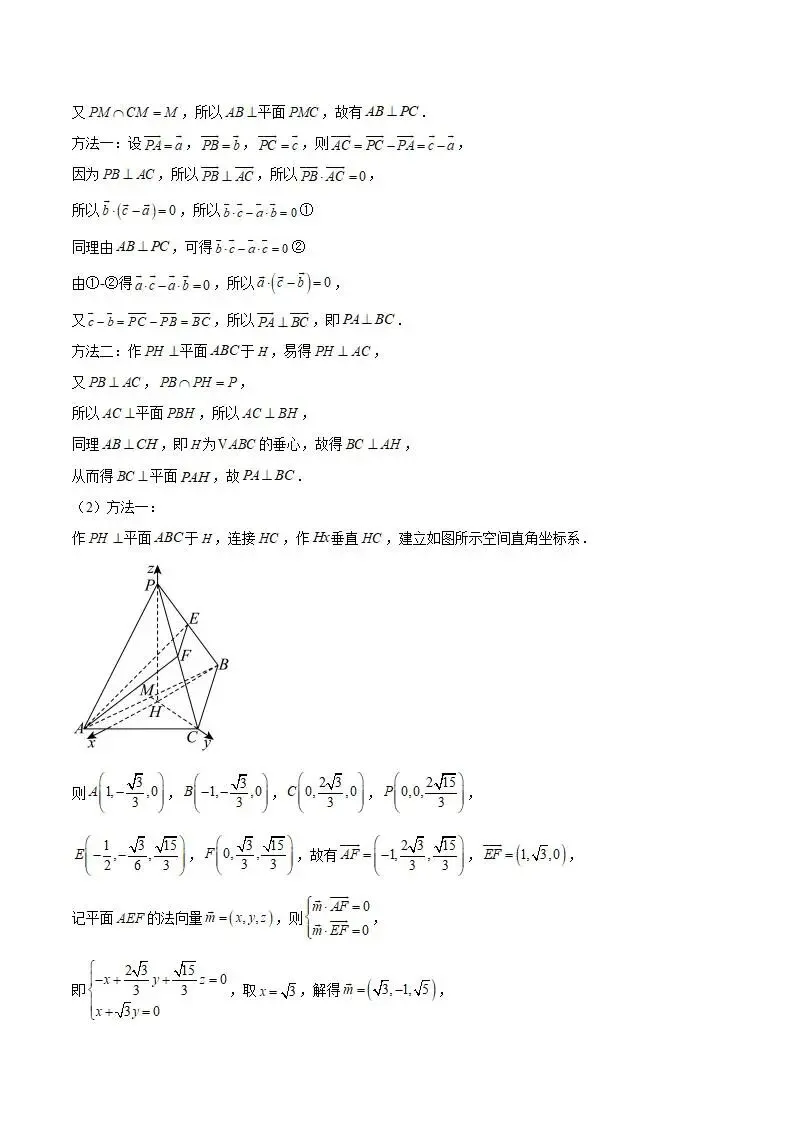 又 PM∩CM = M，所以 AB⊥平面 PMC，故有 AB⊥PC．
方法一：设 \overrightarrow{PA}=\vec{a}，\overrightarrow{PB}=\vec{b}，\overrightarrow{PC}=\vec{c}，则 \overrightarrow{AC}=\overrightarrow{PC}-\overrightarrow{PA}=\vec{c}-\vec{a}，
因为 PB⊥AC，所以 \overrightarrow{PB}⊥\overrightarrow{AC}，所以 \overrightarrow{PB}·\overrightarrow{AC}=0，
所以 \vec{b}·(\vec{c}-\vec{a})=0，所以 \vec{b}·\vec{c}-\vec{a}·\vec{b}=0①
同理由 AB⊥PC，可得 \vec{b}·\vec{c}-\vec{a}·\vec{c}=0②
由①-②得 \vec{a}·\vec{c}-\vec{a}·\vec{b}=0，所以 \vec{a}·(\vec{c}-\vec{b})=0，
又 \vec{c}-\vec{b}=\overrightarrow{PC}-\overrightarrow{PB}=\overrightarrow{BC}，所以 \overrightarrow{PA}⊥\overrightarrow{BC}，即 PA⊥BC．
方法二：作 PH⊥平面 ABC 于 H，易得 PH⊥AC，
又 PB⊥AC，PB∩PH = P，
所以 AC⊥平面 PBH，所以 AC⊥BH，
同理 AB⊥CH，即 H 为 VABC 的垂心，故得 BC⊥AH，
从而得 BC⊥平面 PAH，故 PA⊥BC．
（2）方法一：
作 PH⊥平面 ABC 于 H，连接 HC，作 Hx 垂直 HC，建立如图所示空间直角坐标系．
z
P
E
F
B
M
H
A
x
C
y
则 A(1,-\frac{\sqrt{3}}{3},0)，B(-1,-\frac{\sqrt{3}}{3},0)，C(0,\frac{2\sqrt{3}}{3},0)，P(0,0,\frac{2\sqrt{15}}{3})，
E(-\frac{1}{2},-\frac{\sqrt{3}}{6},\frac{\sqrt{15}}{3})，F(0,\frac{\sqrt{3}}{3},\frac{\sqrt{15}}{3})，故有 \overrightarrow{AF}=(-1,\frac{2\sqrt{3}}{3},\frac{\sqrt{15}}{3})，\overrightarrow{EF}=(1,\sqrt{3},0)，
记平面 AEF 的法向量 \vec{m}=(x,y,z)，则 \begin{cases}\vec{m}·\overrightarrow{AF}=0\\\vec{m}·\overrightarrow{EF}=0\end{cases}，
即 \begin{cases}-x+\frac{2\sqrt{3}}{3}y+\frac{\sqrt{15}}{3}z=0\\x+\sqrt{3}y=0\end{cases}，取 x=\sqrt{3}，解得 \vec{m}=(\sqrt{3},-1,\sqrt{5})，